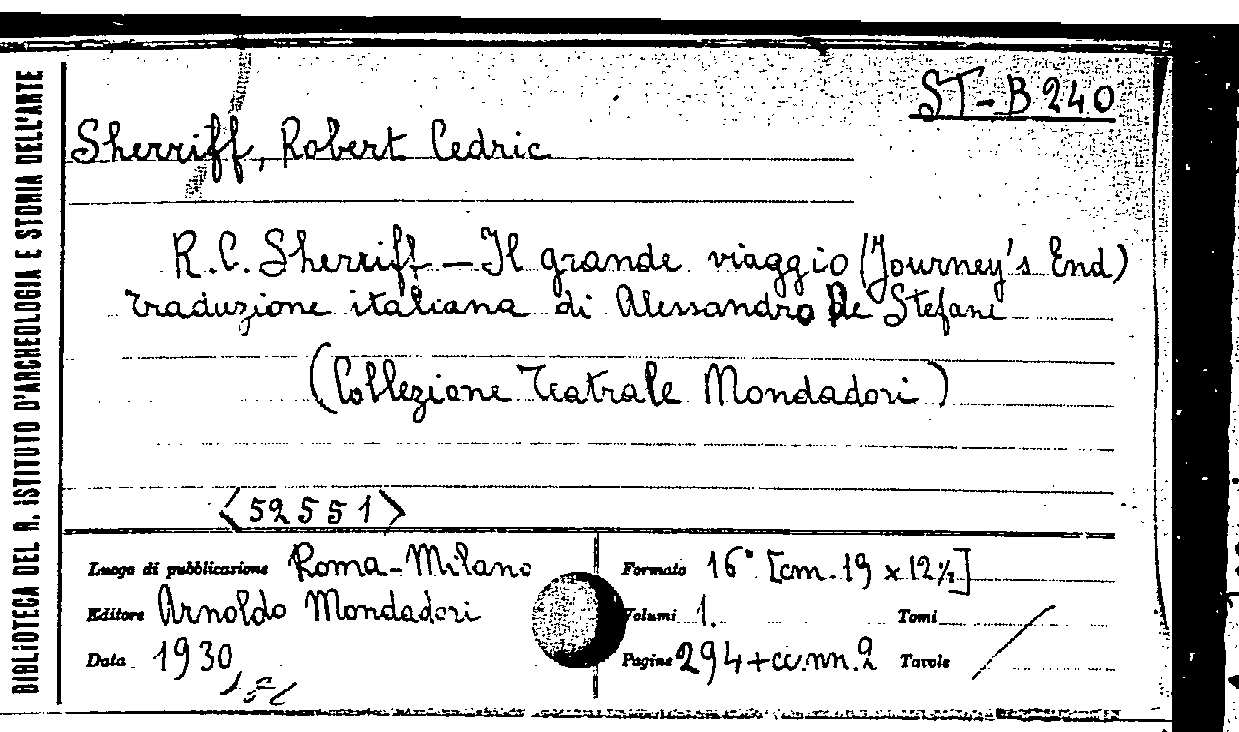 BIBLIOTECA DEL R. ISTITUTO D'ARCHEOLOGIA E STORIA DELL'ARTE
ST-B 240
Sherriff, Robert Cedric
R.C. Sherriff - Il grande viaggio (Journey's End)
traduzione italiana di Alessandro De Stefani
(Collezione Teatrale Mondadori)
<52551>
Luogo di pubblicazione Roma-Milano
Editore Arnoldo Mondadori
Data 1930
Formato 16° [cm. 19 x 12½]
Volumi 1. Tomi
Pagine 294+cc.nn.2 Tavole